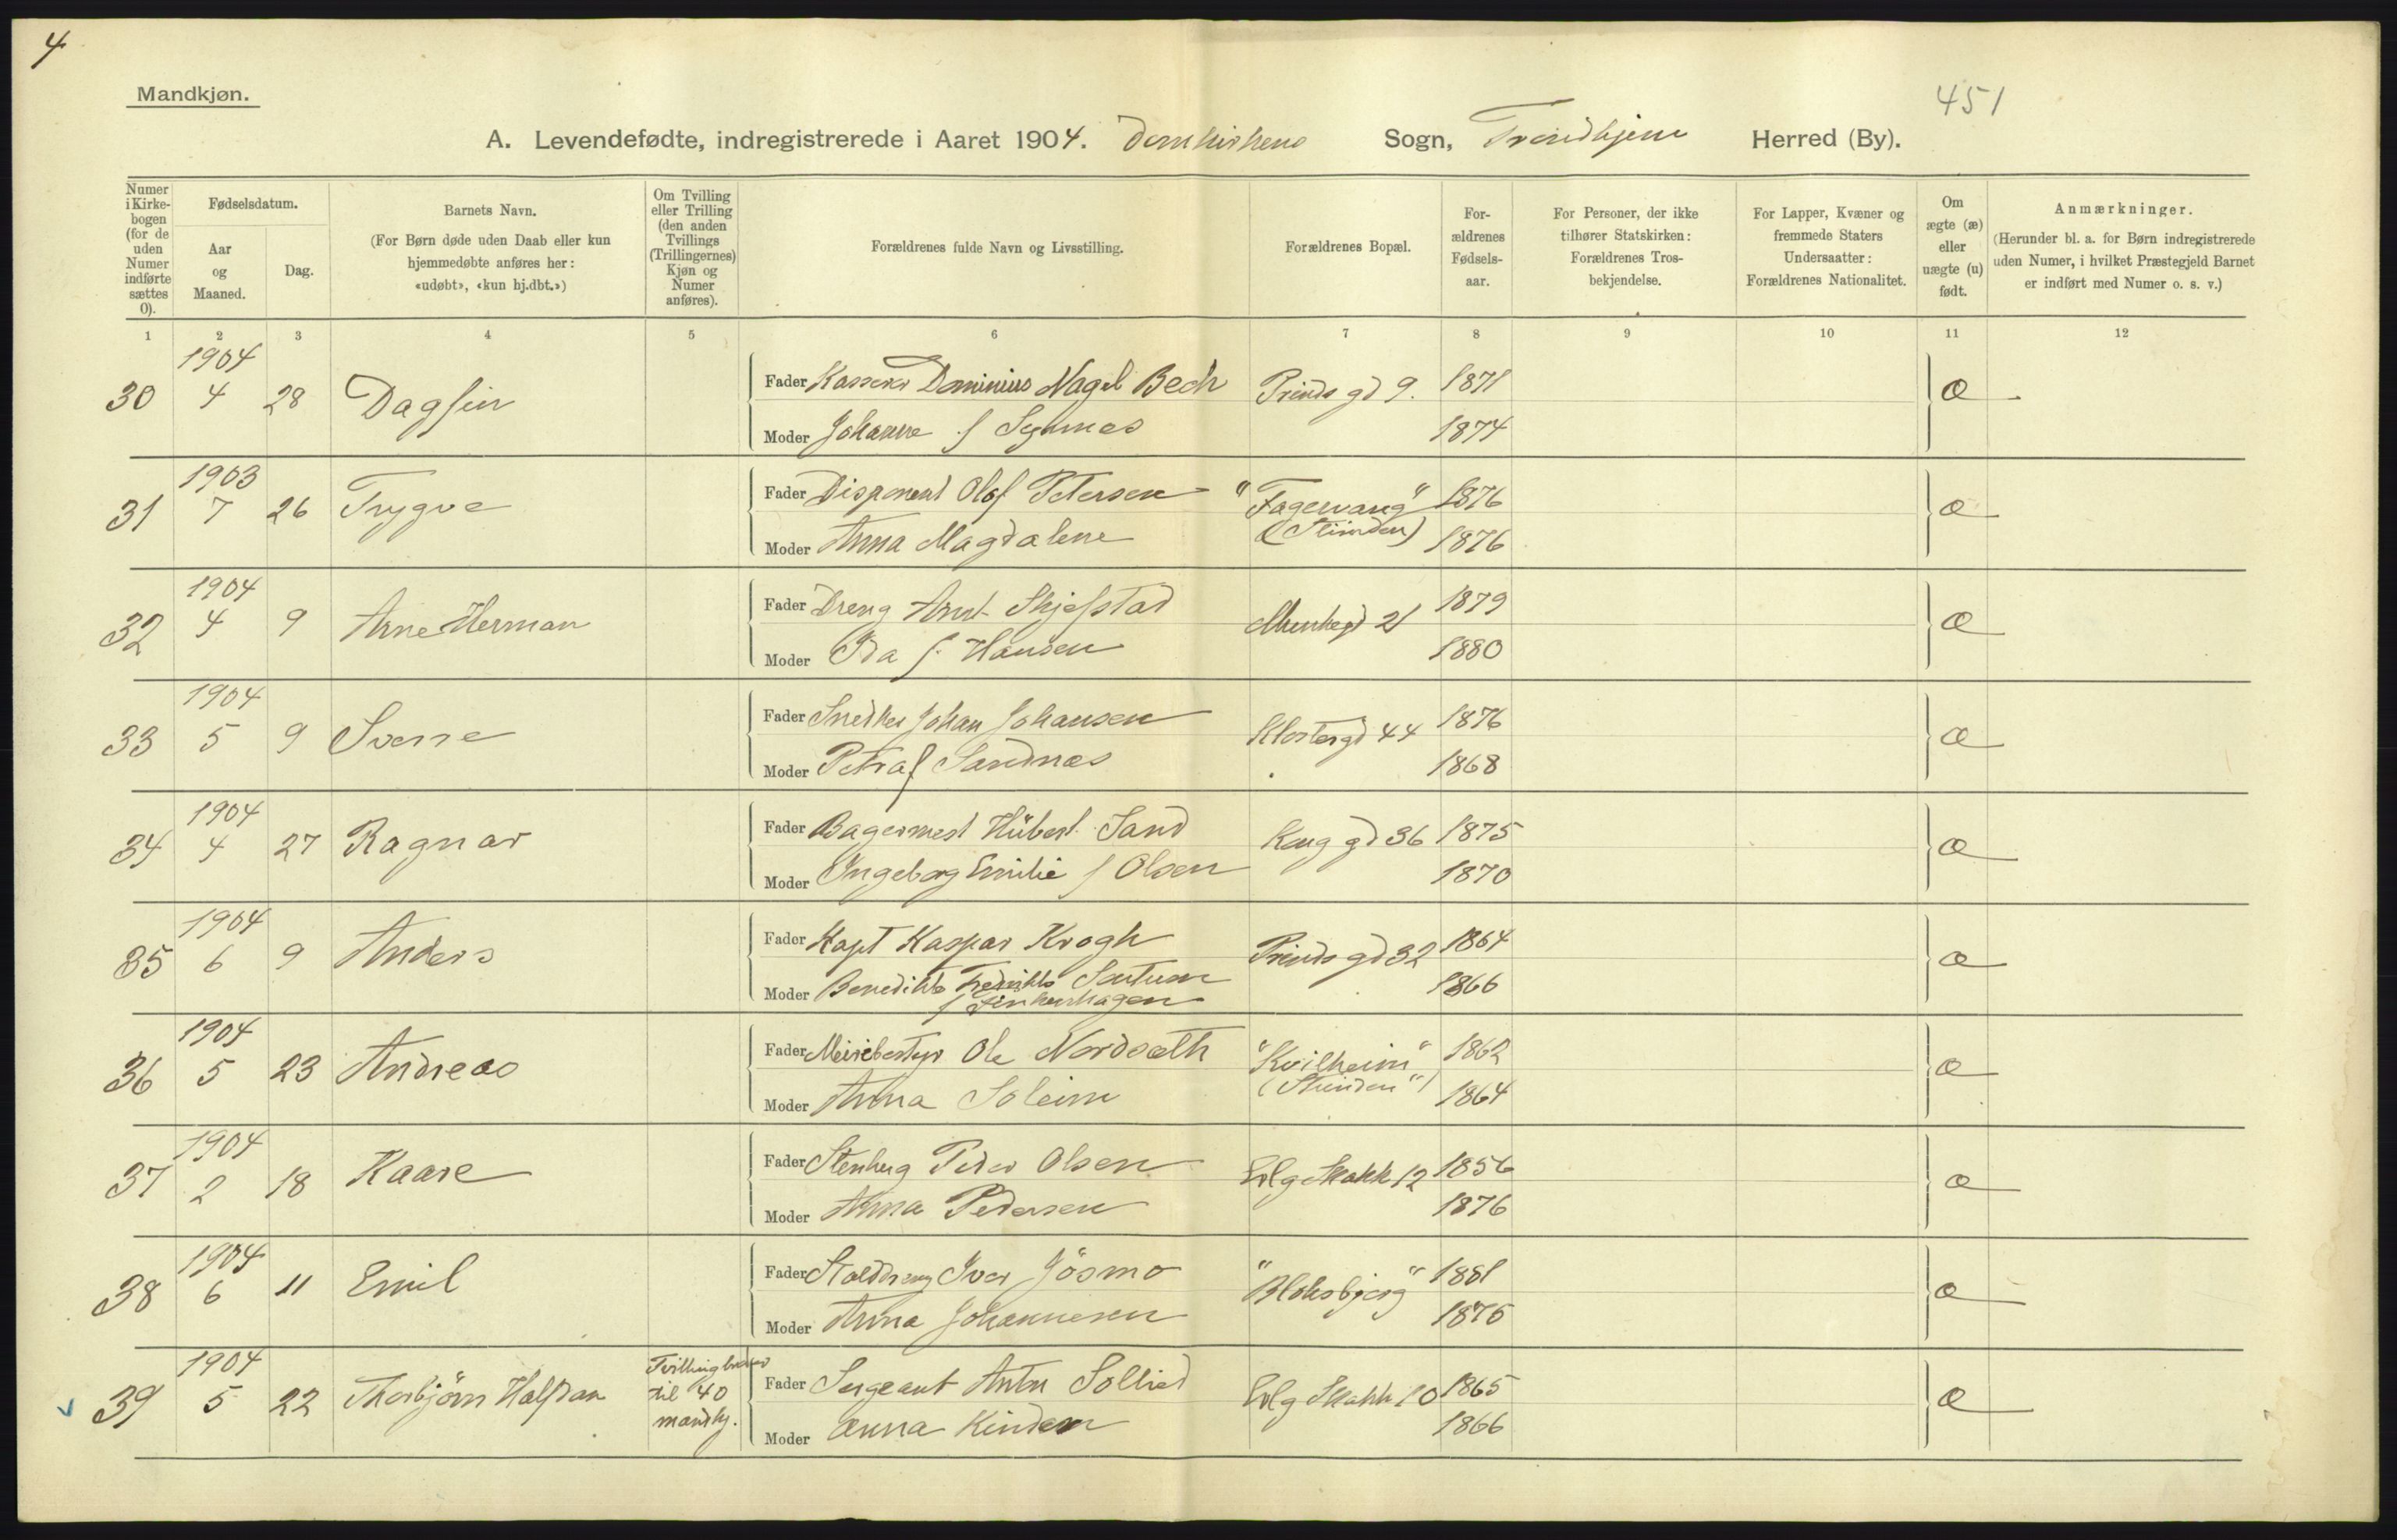 4
Mandkjøn.
451
A. Levendefødte, indregistrerede i Aaret 1904. Domkirkens Sogn, Trondhjem Herred (By).
Numer i Kirke-bogen (for de uden Numer indførte sættes 0).
Fødselsdatum.
Aar og Maaned.
Dag.
Barnets Navn.
(For Børn døde uden Daab eller kun hjemmedøbte anføres her: «udøbt», «kun hj.dbt.»)
Om Tvilling eller Trilling (den anden Tvillings (Trillingernes) Kjøn og Numer anføres).
Forældrenes fulde Navn og Livsstilling.
Forældrenes Bopæl.
For-ældrenes Fødsels-aar.
For Personer, der ikke tilhører Statskirken: Forældrenes Tros-bekjendelse.
For Lapper, Kvæner og fremmede Staters Undersaatter: Forældrenes Nationalitet.
Om ægte (æ) eller uægte (u) født.
Anmærkninger.
(Herunder bl. a. for Børn indregistrerede uden Numer, i hvilket Præstegjeld Barnet er indført med Numer o. s. v.)
1 2 3 4 5 6 7 8 9 10 11 12
1904
30 4 28 Dagfin Fader Kasserer Dominius Nagel Bech Prinds gd 9. 1871 æ
Moder Johanne f Sejnæs 1874
1903
31 7 26 Trygve Fader Disponent Olaf Petersen "Fagervang" 1876 æ
Moder Anna Magdalene (Stinden) 1876
1904
32 4 9 Arne Herman Fader Dreng Arnt Skjefstad Munkegd 21 1879 æ
Moder Ida f. Hansen 1880
1904
33 5 9 Sverre Fader Snedker Johan Johansen Klostergd 44 1876 æ
Moder Petra f Sandnæs 1868
1904
34 4 27 Ragnar Fader Bagermest Hübert Sand Kong gd 36 1875 æ
Moder Ingeborg Emilie f Olsen 1870
1904
35 6 9 Anders Fader Kapt Kaspar Krogh Prinds gd 32 1864 æ
Moder Benedikte Fredrikke Sontum 1866
f Finkenhagen
1904
36 5 23 Andreas Fader Meieribestyr Ole Nordsæth "Kvilheim" 1862 æ
Moder Anna Soleim (Stinden") 1864
1904
37 2 18 Kaare Fader Stenhug Peder Olsen Elvg Skakk 12 1856 æ
Moder Anna Pedersen 1876
1904
38 6 11 Emil Fader Stalddreng Iver Jösmo "Bloksbjerg" 1881 æ
Moder Anna Johannesen 1876
1904
39 5 22 Thorbjörn Halfdan Tvillingbroder til 40 mandkj. Fader Sergeant Anton Sollied Elvg Skakk 10 1865 æ
Moder Anna Kindem 1866